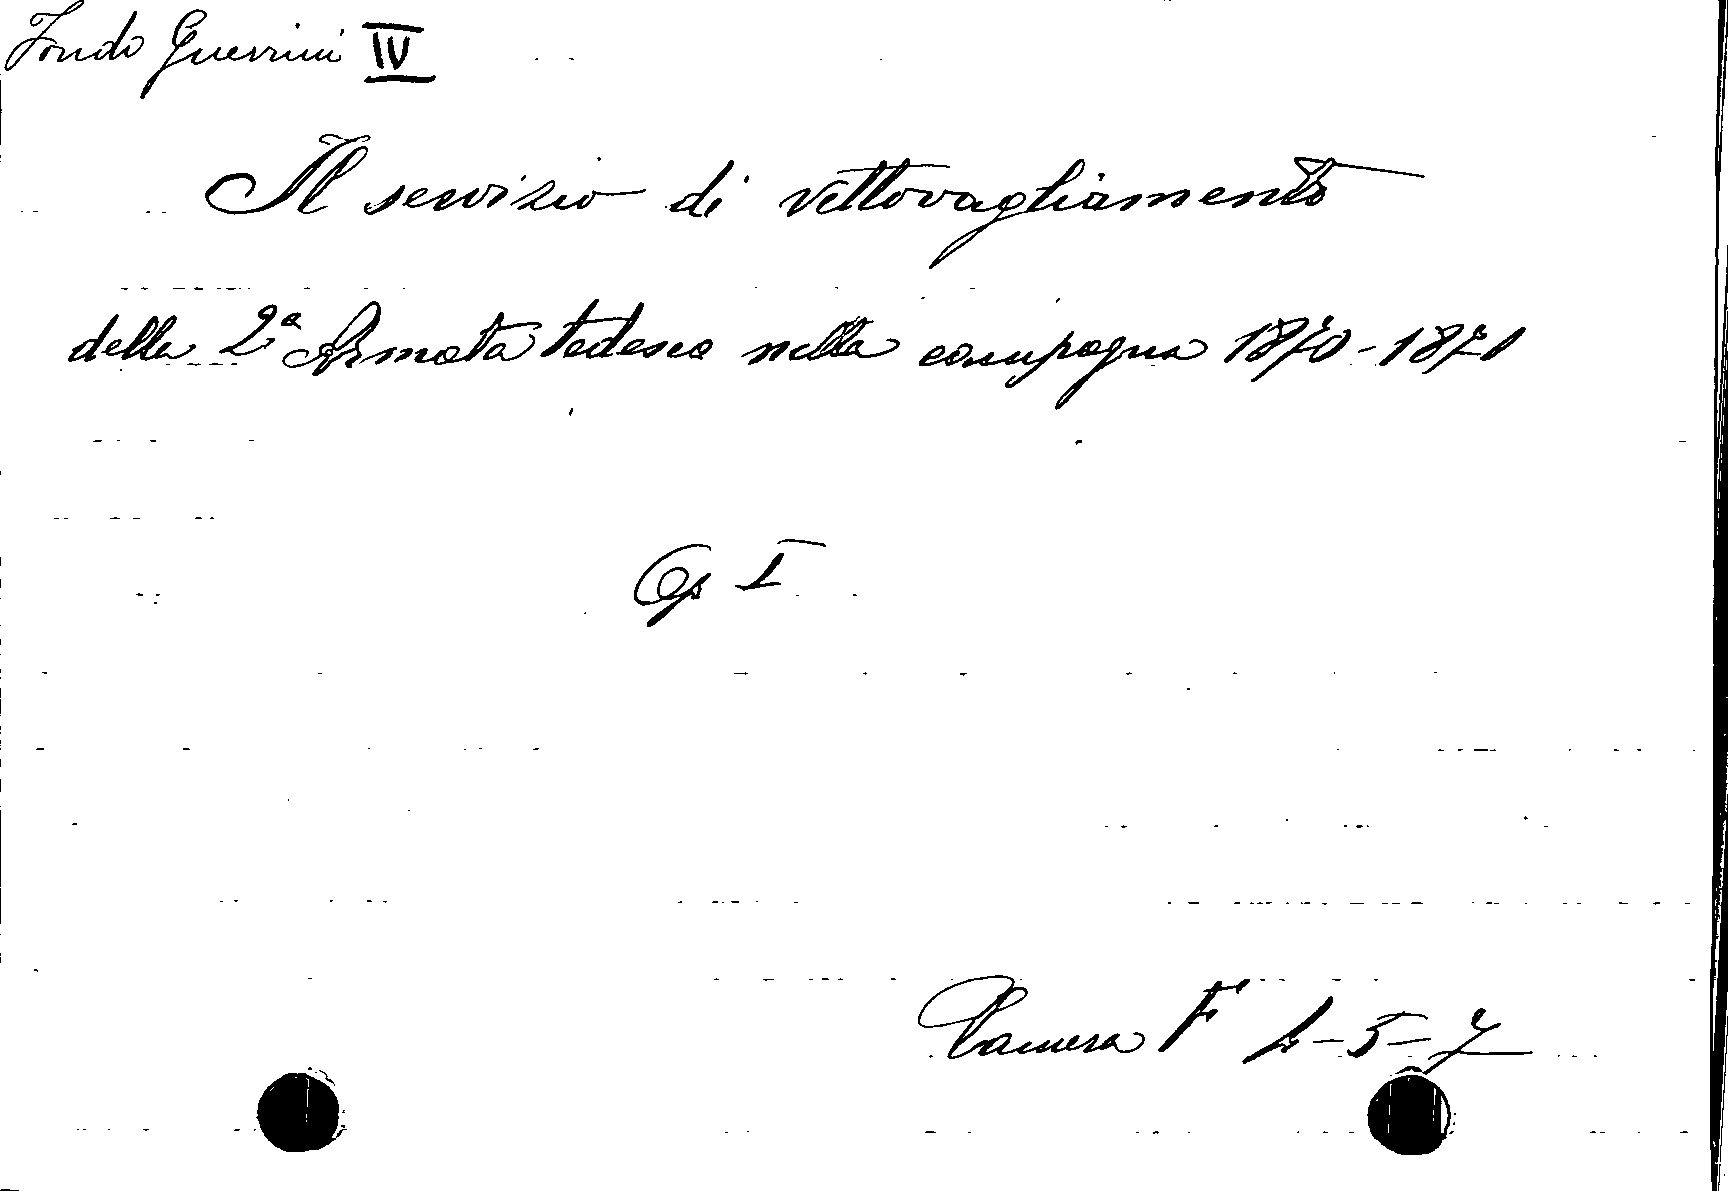 Fondo Guerrini IV
Il servizio di vettovagliamento
della 2ª Armata tedesca nella campagna 1870-1871
Cp I
Camera F 4-5-7